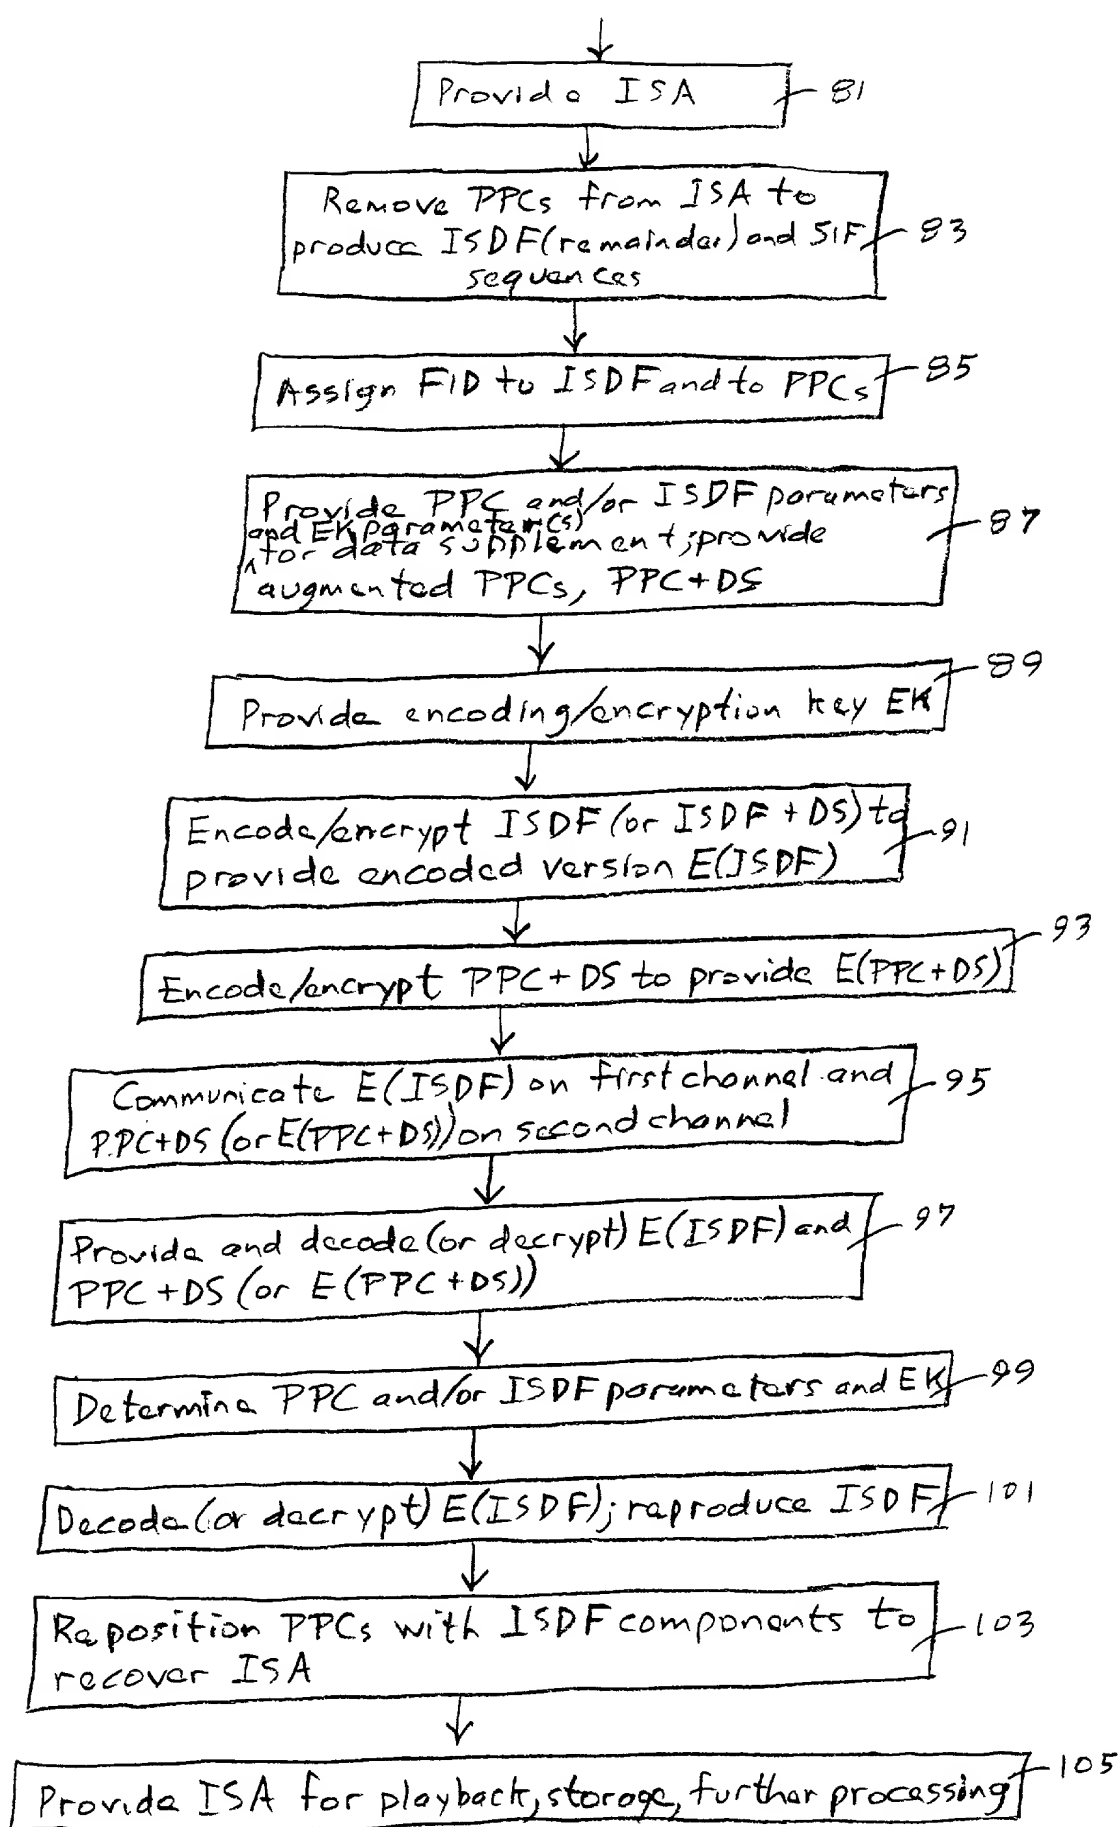 Provide ISA 81
Remove PPCs from ISA to
produce ISDF(remainder) and SIF 83
sequences
Assign FID to ISDF and to PPCs 85
Provide PPC and/or ISDF parameters
and EK parameter(s)
^ for data supplement; provide 87
augmented PPCs, PPC+DS
Provide encoding/encryption key EK 89
Encode/encrypt ISDF (or ISDF + DS) to
provide encoded version E(ISDF) 91
Encode/encrypt PPC+DS to provide E(PPC+DS) 93
Communicate E(ISDF) on first channel and 95
PPC+DS (or E(PPC+DS)) on second channel
Provide and decode (or decrypt) E(ISDF) and 97
PPC+DS (or E(PPC+DS))
Determine PPC and/or ISDF parameters and EK 99
Decode (or decrypt) E(ISDF); reproduce ISDF 101
Reposition PPCs with ISDF components to 103
recover ISA
Provide ISA for playback, storage, further processing 105